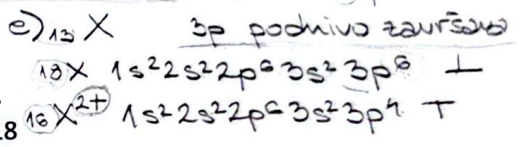 e) ₁₃X 3p podnivo završava
₁₈X 1s² 2s² 2p⁶ 3s² 3p⁶ ⊥
8 ₁₆X²⁺ 1s² 2s² 2p⁶ 3s² 3p⁴ T